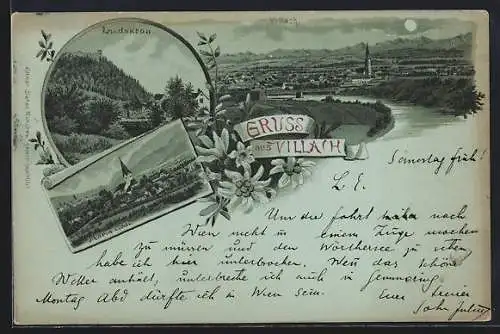 Landskron
Villach
GRUSS
aus VILLACH
Maria Gail
Sonnstag früh!
L. E.
Um die Fahrt nach
Wien nicht in einem Zuge machen
zu müssen und den Wörthersee zu sehen
habe ich hier unterbrochen. Wenn das schöne
Wetter anhält, unterbreche ich auch in Semmering
Montag Abd dürfte ich in Wien sein. Euer treuer
Sohn Julius